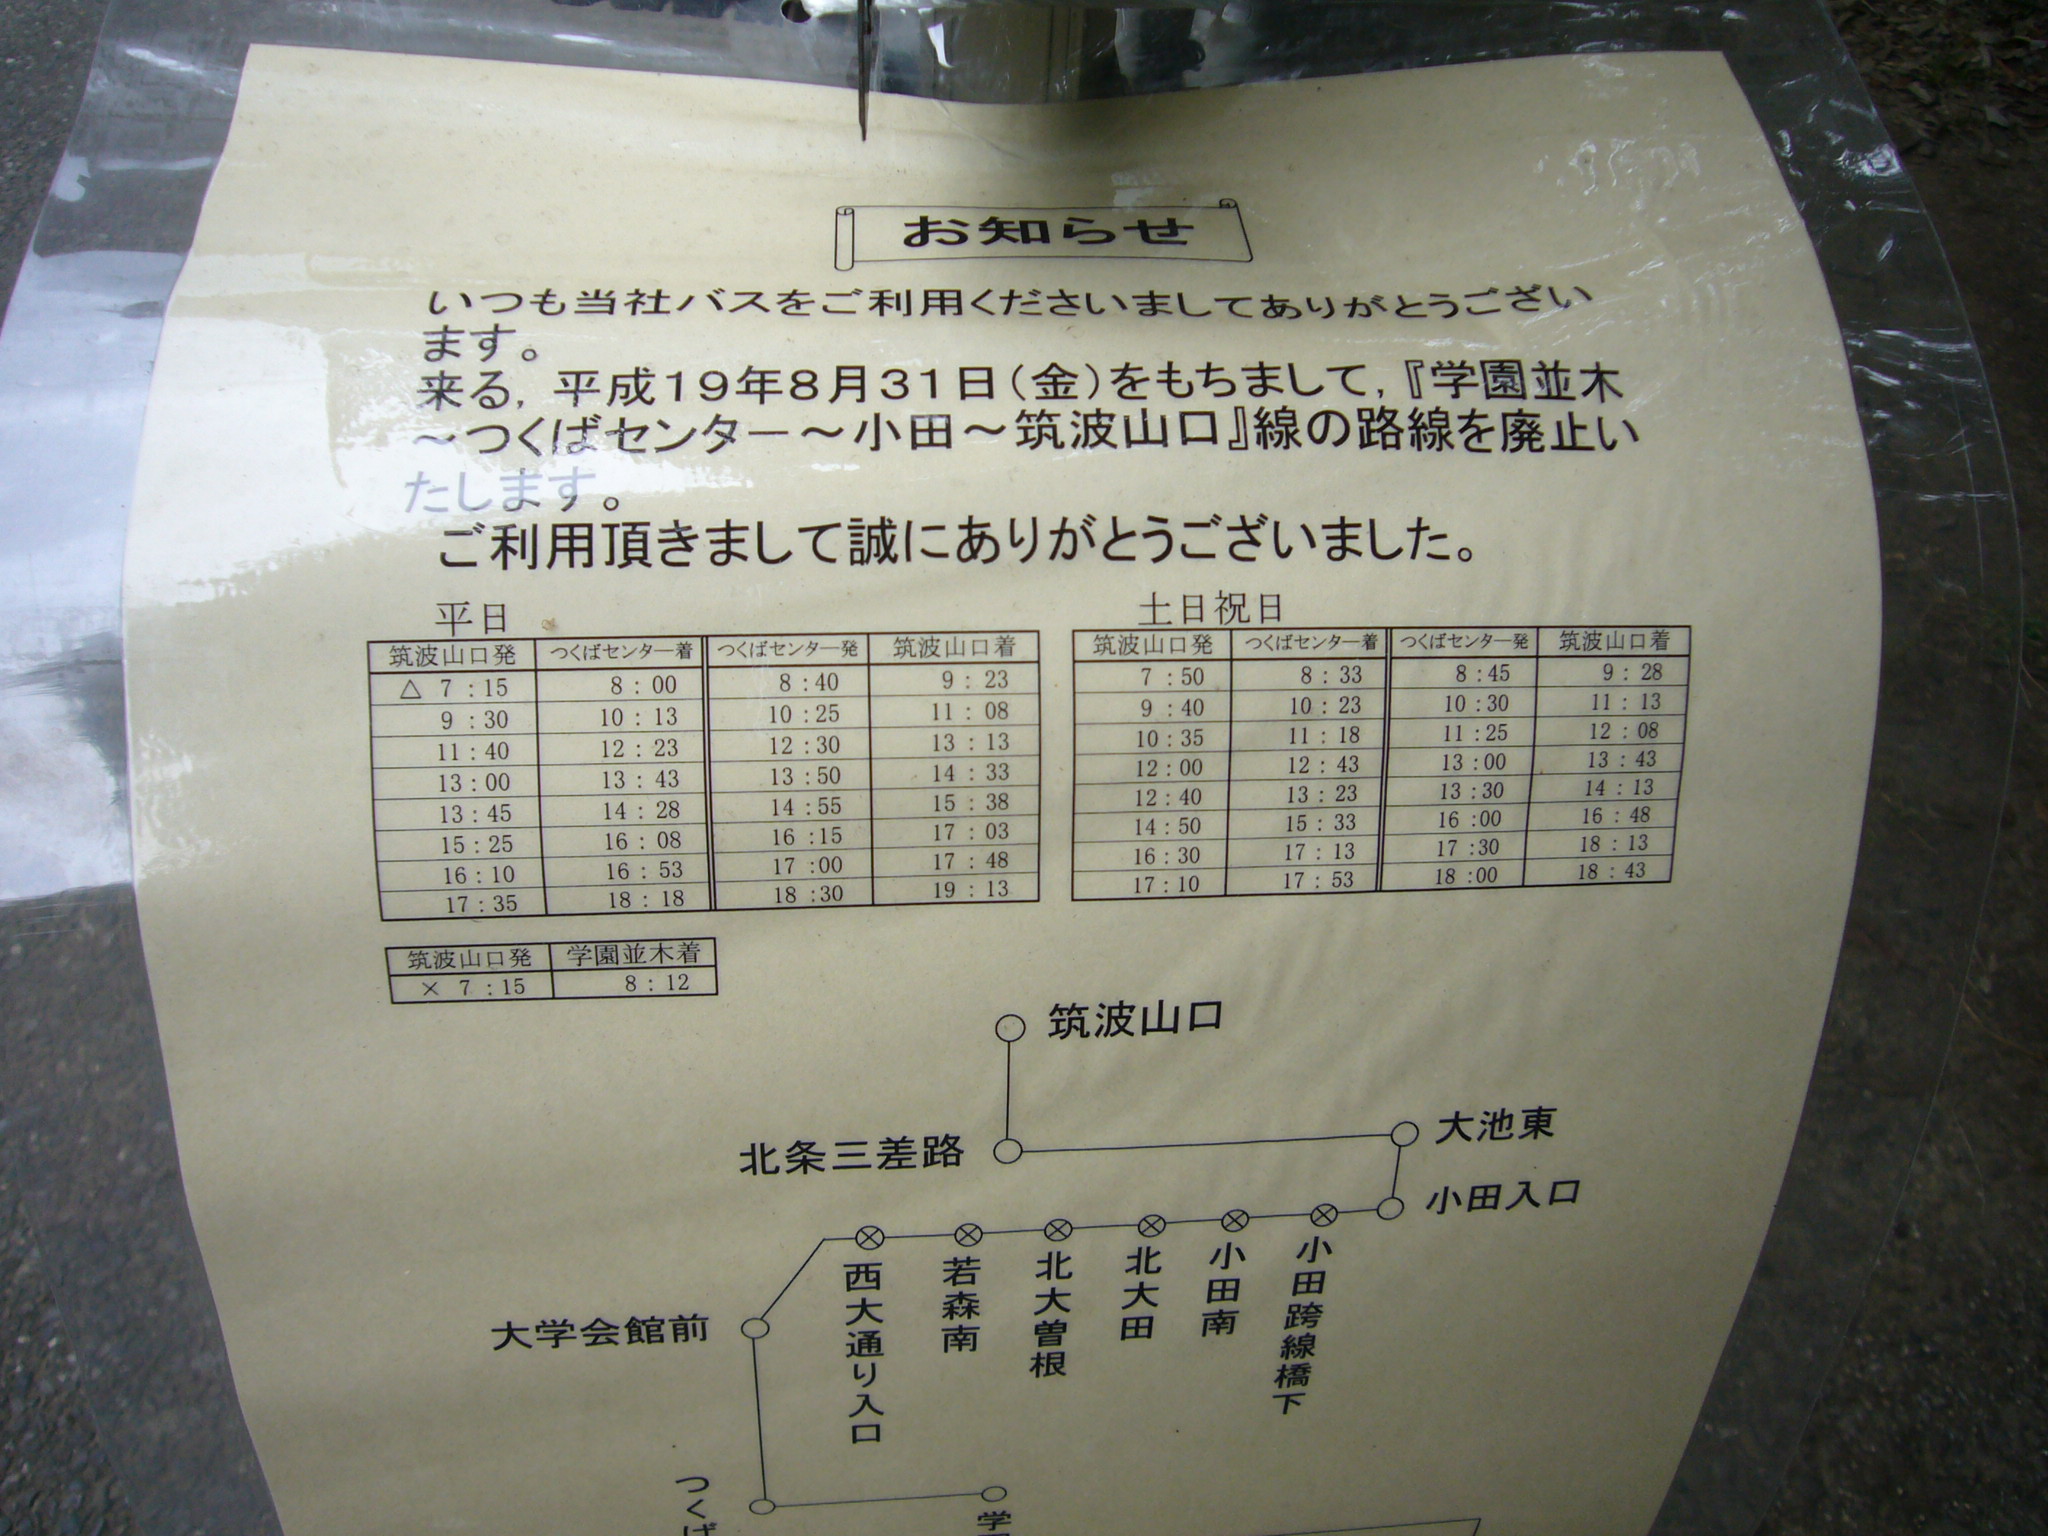 お知らせ
いつも当社バスをご利用くださいましてありがとうござい
ます。
来る，平成１９年８月３１日（金）をもちまして，『学園並木
～つくばセンター～小田～筑波山口』線の路線を廃止い
たします。
ご利用頂きまして誠にありがとうございました。
平日
筑波山口発 つくばセンター着 つくばセンター発 筑波山口着
△ 7：15 8：00 8：40 9：23
9：30 10：13 10：25 11：08
11：40 12：23 12：30 13：13
13：00 13：43 13：50 14：33
13：45 14：28 14：55 15：38
15：25 16：08 16：15 17：03
16：10 16：53 17：00 17：48
17：35 18：18 18：30 19：13
土日祝日
筑波山口発 つくばセンター着 つくばセンター発 筑波山口着
7：50 8：33 8：45 9：28
9：40 10：23 10：30 11：13
10：35 11：18 11：25 12：08
12：00 12：43 13：00 13：43
12：40 13：23 13：30 14：13
14：50 15：33 16：00 16：48
16：30 17：13 17：30 18：13
17：10 17：53 18：00 18：43
筑波山口発 学園並木着
× 7：15 8：12
筑波山口
北条三差路
大池東
小田入口
西大通り入口
若森南
北大曽根
北大田
小田南
小田跨線橋下
大学会館前
つくば
学